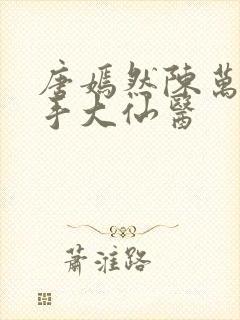 唐嫣然陳萬
手大仙醫
蕭淮路